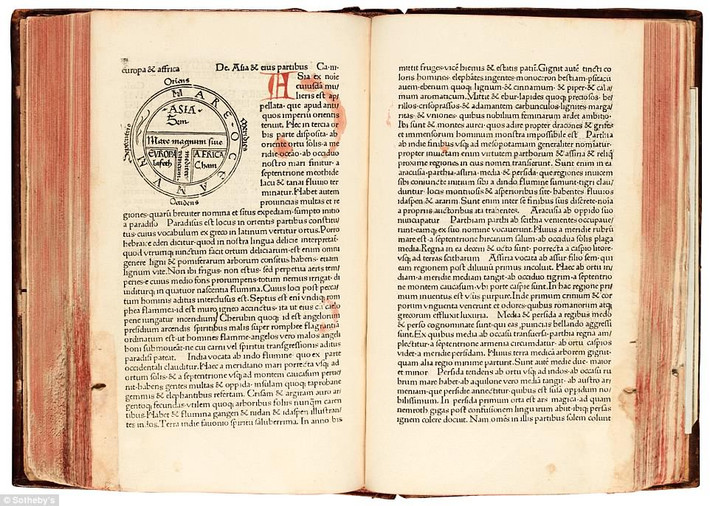 europa & affrica De Asia & eius partibus Ca· iii
Oriens
MARE OCEANUM
ASIA
Sem
Mare magnum siue
mediterraneum
EVROPA
Iafeth
AFRICA
Cham
Septentrio
Meridies
Occidens
ASia ex noīe
cuiusdā mu/
lieris est ap/
pellata· que apud anti/
quos imperiū orientis
tenuit. Haec in tercia or
bis parte disposita· ab
oriente ortu solis· a me/
ridie·oceano·ab occiduo
nostro mari finitur· a
septentrione meothide
lacu & tanai fluuio ter
minatur. Habet autem
prouincias multas et re
giones·quarū breuiter nomina et situs expediam·sumpto initio
a paradiso Paradisus est locus in orientis partibus constitu/
tus·cuius vocabulum ex greco in latinum vertitur ortus. Porro
hebraice eden dicitur·quod in nostra lingua delicie interpretat̄·
quod vtrumq; iunctum facit ortum deliciarum·est enim omni
genere ligni & pomiferarum arborum consitus habens·etiam
lignum vite. Non ibi frigus· non estus·sed perpetua aeris tem/
peries·e cuius medio fons prorumpens·totum nemus irrigat·di
uiditurq; in quatuor nascentia flumina. Cuius loci post pecca/
tum hominis aditus interclusus est. Septus est eni vndiq; rom/
phea flammea·id est muro igneo accinctus·ita vt eius cū celo
pene iungatur incendium/ Cherubin quoq; id est angelorum
presidium arcendis spiritibus malis super romphee flagrantiā
ordinatum est·ut homines flamme·angelos vero malos angeli
boni submoueāt·ne cui carni vel spiritui transgressionis aditus
paradisi pateat. India vocata ab indo flumine quo ex parte
occidentali clauditur. Haec a meridiano mari porrecta vsq; ad
ortum solis·& a septentrione vsq; ad montem caucasum perue/
nit·habens gentes multas & oppida·insulam quoq; taprobane
gemmis & elephantibus refertam. Crisam & argiram auro ar/
gentoq; fecundas·vtilem quoq; arboribus folijs nunq̄m caren
tibus. Habet & flumina gangen & nidan & idaspen illustran
tes indos. Terra indie fauonij spiritu saluberrima. In anno bis
mettit fruges·vice hiemis & estatis patit̄. Gignit autē tincti co
loris homines·elephātes ingentes·monoceron bestiam·psitacū
auem·ebenum quoq; lignum & cinnamum· & piper & cala/
mum aromaticum. Mittit & ebur·lapides quoq; preciosos· be/
rillos·crisoprassos & adamantem·carbunculos·lignites·marga/
ritas·& vniones· quibus nobilium feminarum ardet ambitio·
Ibi sunt & montes aurei·quos adire propter dracones & grifes
et immensorum hominum monstra impossibile est Parthia
ab indie finibus vsq; ad mesopotamiam generaliter nominat̄·
propter inuictam enim virtutem parthorum & assiria & reliq̄
proxime regiones·in eius nomen transierunt. Sunt enim in ea
aracusia·parthia·assiria·media & persida·que regiones inuicem
sibi coniuncte initium sibi a flumine sumunt·tigri clau/
duntur·locis montuosis & asperis sitae·habentes fluuios
idaspem & arbim. Sunt enim inter se finibus suis discrete·noīa
a proprijs auctoribus ita trahentes. Aracusia ab oppido suo
nuncupata Parthiam parthi ab scithia venientes occupaue/
runt·eamq; ex suo nomine vocauerunt. Huius a meridie rubrū
mare est·a septentrione hircanum salum·ab occidui solis plaga
media. Regna in ea decem & octo sunt·porrecta a caspio litore
vsq; ad terras scitharum Assiria vocata ab assur filio sem·qui
eam regionem post diluuium primus incoluit. Haec ab ortu in/
diam·a meridie medium tangit·ab occiduo tigrim a septentrio/
ne montem caucasum·vbi porte caspie sunt. In hac regione pri/
mum inuentus est vsus purpurae. Inde primum crinium & cor
porum vnguenta venerunt et odores·quibus romanorum atq;
grecorum effluxit luxuria. Media & persida a regibus medo
& perso cognominate sunt·qui eas prouincias bellando aggressi
sunt. Ex quibus media ab occasu transuersa parthia regna am/
plectitur·a septentrione armenia circumdatur·ab ortu caspios
videt·a meridie persidam. Huius terra medicā arborem gignit·
quam alia regio minime parturit. Sunt autē medie due·maior
et minor Persida tendens ab ortu vsq; ad indos·ab occasu ru
brum mare habet·ab aquilone vero mediā tangit·ab austro car
maniam·que perside annectitur·quibus est susa oppidum no/
bilissimum. In persida primum orta est ars magica·ad quam
nemroth gigas post confusionem linguarum abijt·ibiq; persas
ignem colere docuit. Nam omnes in illis partibus solem colunt
© Sotheby's